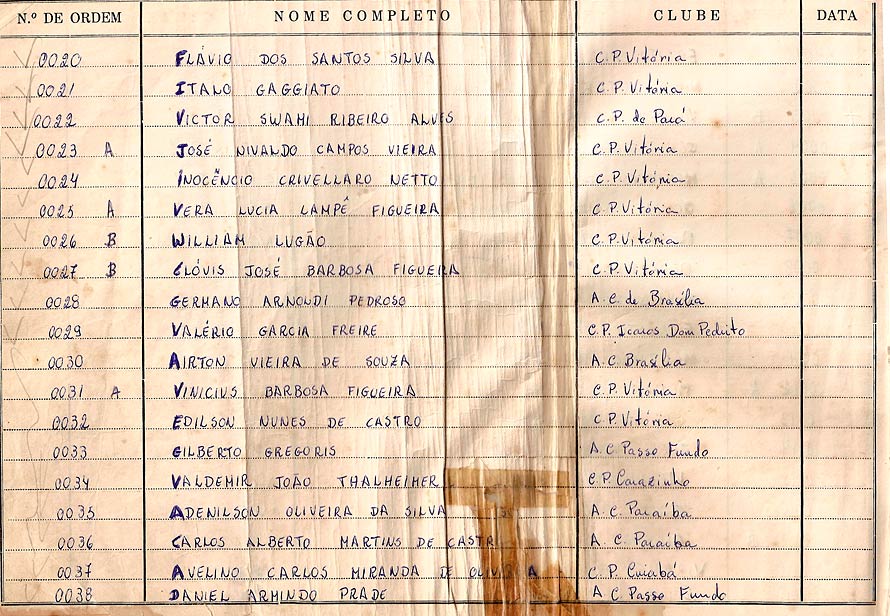 N.º DE ORDEM NOME COMPLETO CLUBE DATA
0020 FLÁVIO DOS SANTOS SILVA C.P. Vitória
0021 ITALO GAGGIATO C.P. Vitória
0022 VICTOR SWAMI RIBEIRO ALVES C.P. de Pará
0023 A JOSÉ NIVALDO CAMPOS VIEIRA C.P. Vitória
0024 INOCÊNCIO CRIVELLARO NETTO C.P. Vitória
0025 A VERA LUCIA LAMPÊ FIGUEIRA C.P. Vitória
0026 B WILLIAM LUGÃO C.P. Vitória
0027 B CLÓVIS JOSÉ BARBOSA FIGUEIRA C.P. Vitória
0028 GERMANO ARNOLDI PEDROSO A.C. de Brasília
0029 VALÉRIO GARCIA FREIRE C.P. Icaros Dom Pedrito
0030 AIRTON VIEIRA DE SOUZA A.C. Brasília
0031 A VINICIUS BARBOSA FIGUEIRA C.P. Vitória
0032 EDILSON NUNES DE CASTRO C.P. Vitória
0033 GILBERTO GREGORIS A.C. Passo Fundo
0034 VALDEMIR JOÃO THALHEIMER C.P. Carazinho
0035 ADENILSON OLIVEIRA DA SILVA A.C. Paraíba
0036 CARLOS ALBERTO MARTINS DE CASTR A.C. Paraíba
0037 AVELINO CARLOS MIRANDA DE C.P. Cuiabá
0038 DANIEL ARMINDO PRADE A.C. Passo Fundo